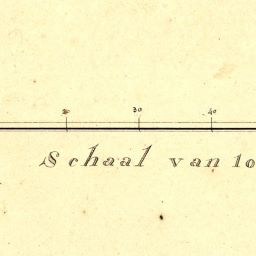 20 30 40
Schaal van 10